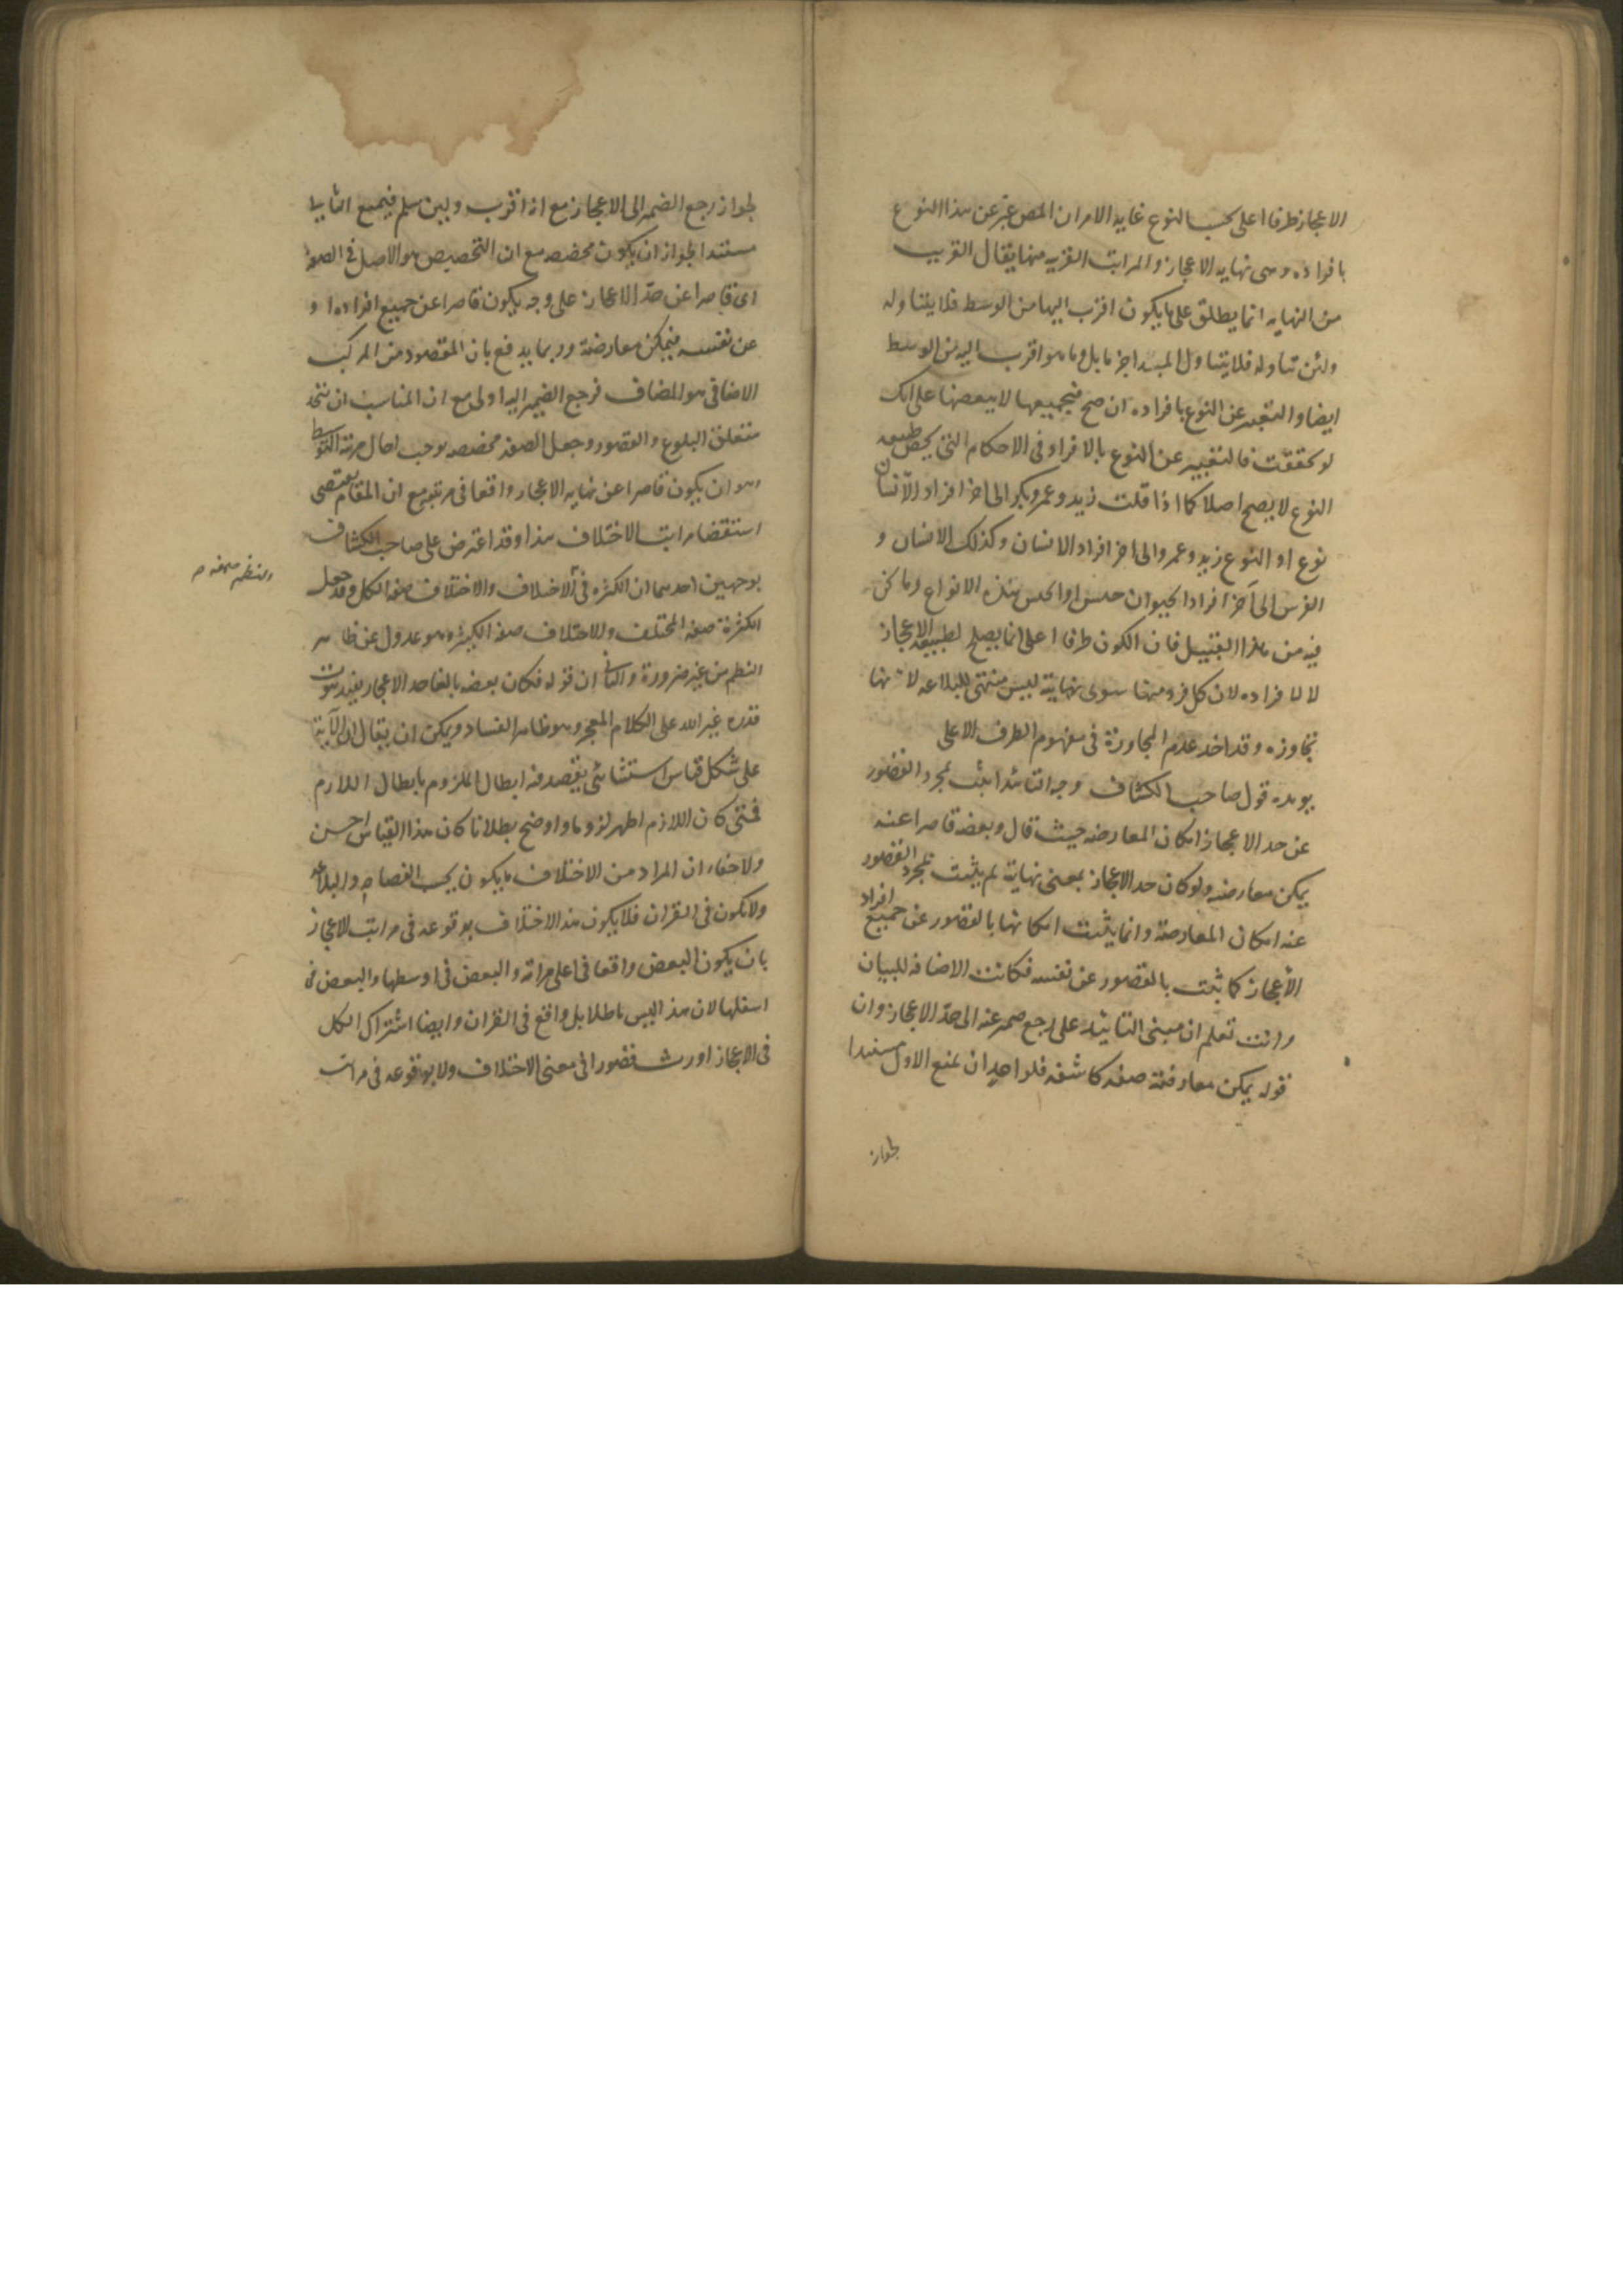 الاعجاز طرفا اعلى بحسب النوع غاية الامر ان المص عبر عن هذا النوع
بافراده وهى نهاية الاعجاز والمراتب القريبه منها يقال القريب
من النهايه انما يطلق على ما يكون اقرب اليها من الوسط فلا يتناوله
ولئن تناوله فلا يتناول المبدا جزما بل وما هو اقرب اليه من الوسط
ايضا والتعبير عن النوع بافراده ان صح فبجميعها لا ببعضها على انك
لو تحققت فالتعبير عن النوع بالافراد فى الاحكام التى تخص طبيعه
النوع لا يصح اصلا كما اذا قلت زيد وعمرو وبكر الى اخر افراد الانسان
نوع او النوع زيد وعمرو الى اخر افراد الانسان وكذلك الانسان و
الفرس الى آخر افراد الحيوان جنس او الجنس هذه الانواع وما نحن
فيه من هذا القبيل فان الكون طرفا اعلى انما يصلح لطبيعة الاعجاز
لا لافراده لان كل فرد منها سوى نهايته ليس منتهى للبلاغه لانها
تجاوزه وقد اخذ عدم المجاوزة فى مفهوم الطرف الاعلى
يويده قول صاحب الكشاف وجه التائيد اثبت بمجرد القصور
عن حد الاعجاز امكان المعارضه حيث قال وبعضه قاصرا عنه
يمكن معارضته ولو كان حد الاعجاز بمعنى نهايته لم يثبت بمجرد القصور
عنه امكان المعارضة وانما يثبت امكانها بالقصور عن جميع افراد
الأعجاز كما يثبت بالقصور عن نفسه فكانت الاضافه للبيان
وانت تعلم ان مبنى التائيد على رجع ضمير عنه الى حد الاعجاز وان
قوله يمكن معارضته صفه كاشفه فلواحد ان يمنع الاول مستندا
لجواز
لجواز رجع الضمير الى الاعجاز مع انه اقرب ولئن سلم فيمنع الثانى
مستندا لجواز ان يكون مخصصه مع ان التخصيص هو الاصل فى الصفة
اى قاصرا عن حد الاعجاز على وجه يكون قاصرا عن جميع افراده او
عن نفسه فيمكن معارضته وربما يدفع بان المقصود من المركب
الاضافى هو المضاف فرجع الضمير اليه اولى مع ان المناسب ان يتحد
متعلق البلوغ والقصور وجعل الصفه مخصصه يوجب اهمال مرتبة التوسط
وهو ان يكون قاصرا عن نهايه الاعجاز واقعا فى مرتبته مع ان المقام يقتضى
استقضا مراتب الاختلاف هذا وقد اعترض على صاحب الكشاف
بوجهين احدهما ان الكثره فى الاختلاف والاختلاف صفة الكل وقد جعل
والنظم صفه صح
الكثرة صفه المختلف والاختلاف صفه الكثيره هو عدول عن ظاهر
النظم من غير ضرورة والثانى ان قوله فكان بعضه بالغا حد الاعجاز يفيد ثبوت
قدره غير الله على الكلام المعجز وهو ظاهر الفساد ويمكن ان يقال ان الآية
على شكل قياس استثنائى يقصد منه ابطال الملزوم بابطال اللازم
فمتى كان اللازم اظهر لزوما واوضح بطلانا كان هذا القياس احسن
ولا خفاء ان المراد من الاختلاف ما يكون بحسب الفصاحه والبلاغه
ولا يكون فى القران فلا يكون هذا الاختلاف بوقوعه فى مراتب الاعجاز
بان يكون البعض واقعا فى اعلى مراتبه والبعض فى اوسطها والبعض فى
اسفلها لان هذا ليس باطلا بل واقع فى القران وايضا اشتراك الكل
فى الاعجاز اورث قصورا فى معنى الاختلاف ولا بوقوعه فى مراتب